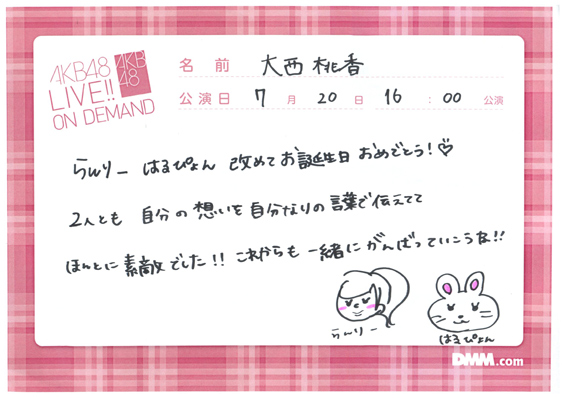 AKB48
LIVE!!
ON DEMAND
AKB
48
名前 大西桃香
公演日 7月20日 16:00公演
らんりー はるぴょん 改めてお誕生日 おめでとう!♡
2人とも 自分の想いを自分なりの言葉で伝えてて
ほんとに素敵でした!! これからも一緒にがんばっていこうな!!
らんりー
はるぴょん
DMM.com